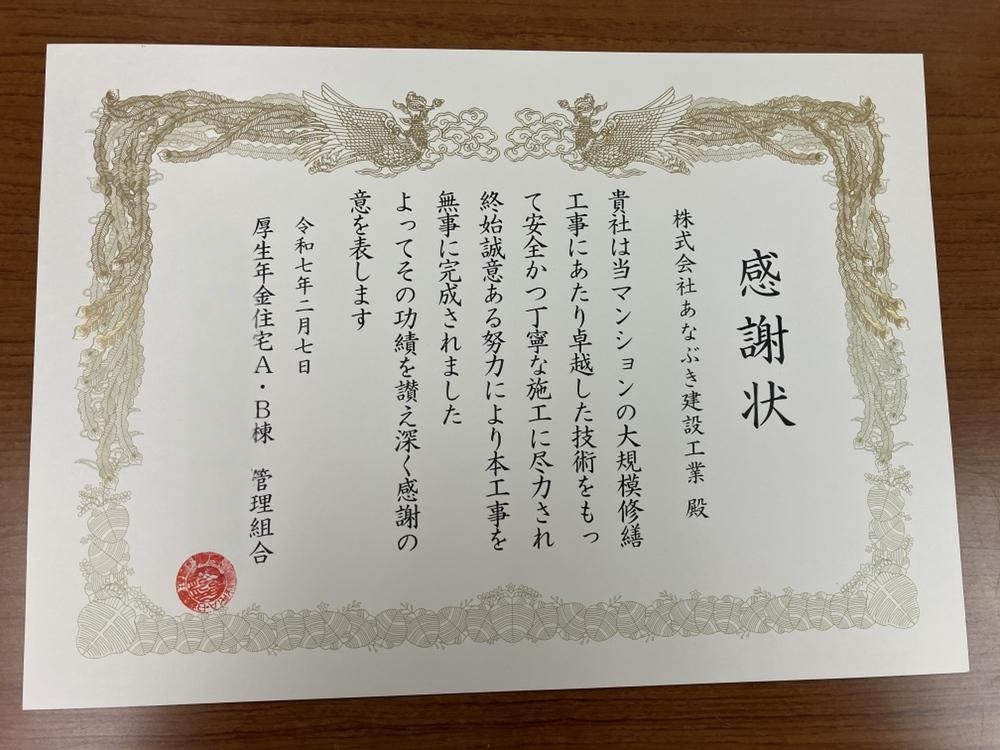 感謝状
株式会社あなぶき建設工業 殿
貴社は当マンションの大規模修繕
工事にあたり卓越した技術をもっ
て安全かつ丁寧な施工に尽力され
終始誠意ある努力により本工事を
無事に完成されました
よってその功績を讃え深く感謝の
意を表します
令和七年二月七日
厚生年金住宅A・B棟 管理組合